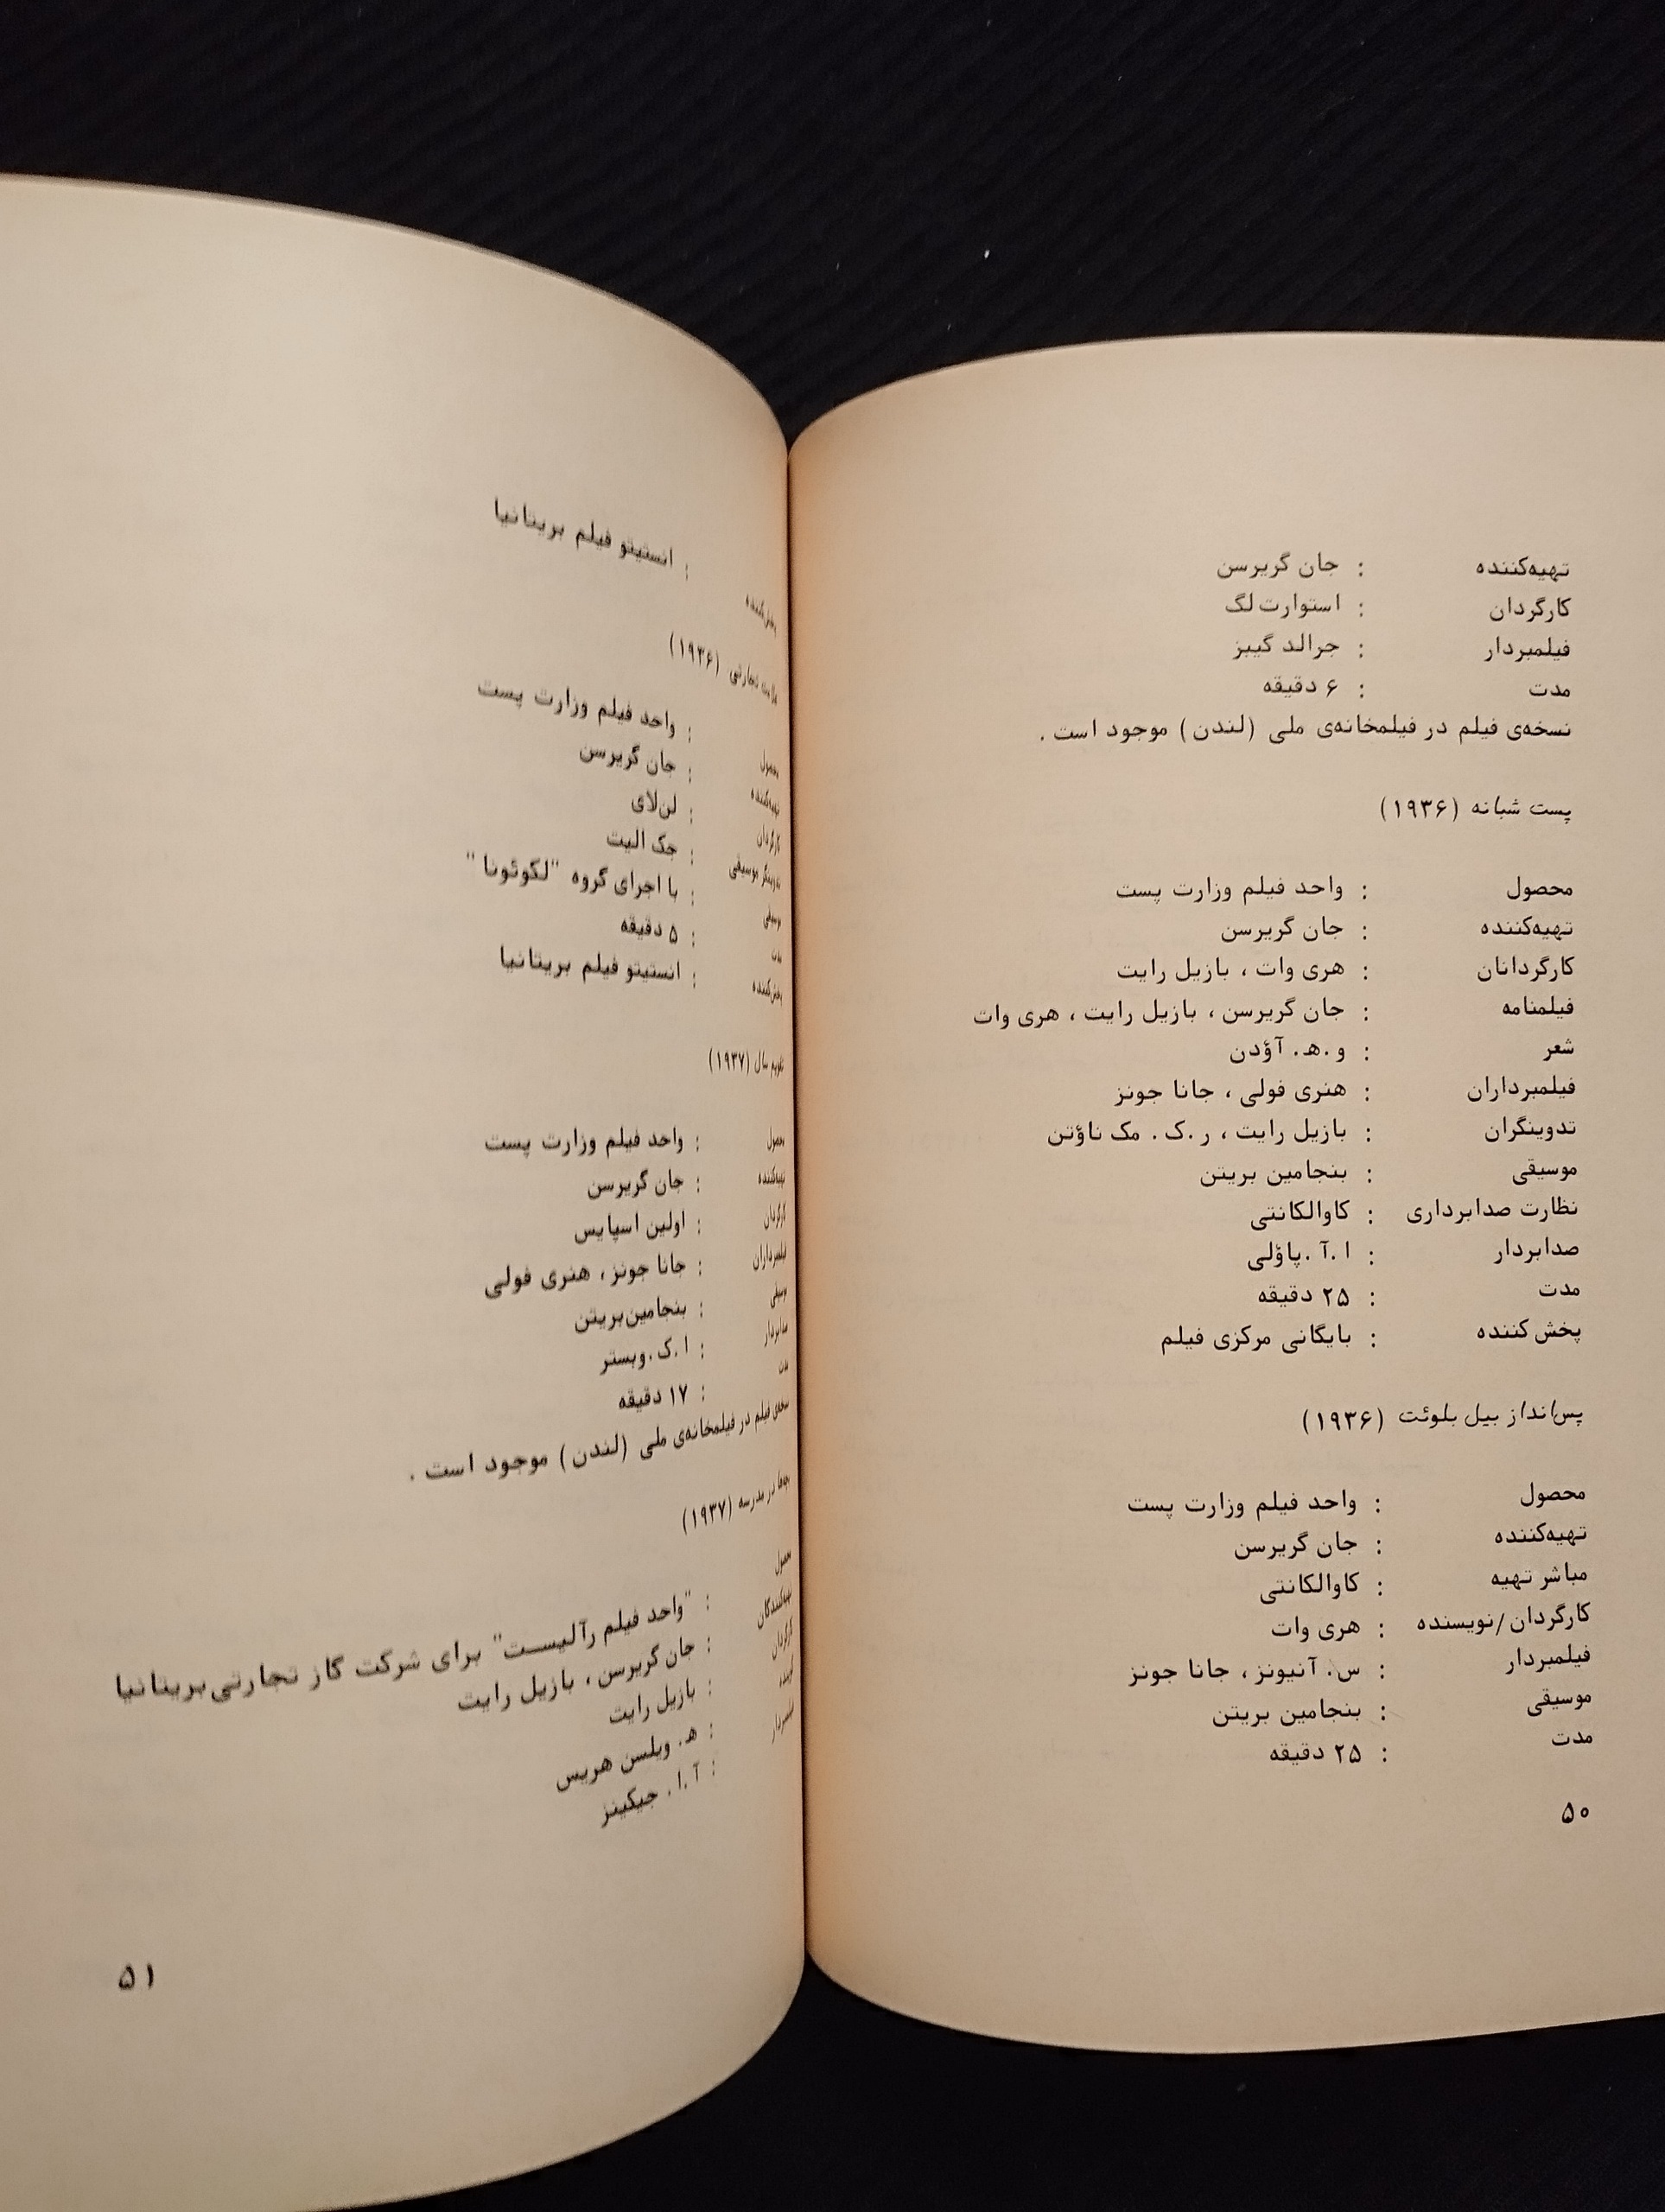 تهیه‌کننده : جان گریرسن
کارگردان : استوارت لگ
فیلمبردار : جرالد گیبز
مدت : ۶ دقیقه
نسخه‌ی فیلم در فیلمخانه‌ی ملی (لندن) موجود است .
پست شبانه (۱۹۳۶)
محصول : واحد فیلم وزارت پست
تهیه‌کننده : جان گریرسن
کارگردانان : هری وات ، بازیل رایت
فیلمنامه : جان گریرسن ، بازیل رایت ، هری وات
شعر : و.ه. آؤدن
فیلمبرداران : هنری فولی ، جانا جونز
تدوینگران : بازیل رایت ، ر.ک. مک ناؤتن
موسیقی : بنجامین بریتن
نظارت صدابرداری : کاوالکانتی
صدابردار : ا.آ.پاؤلی
مدت : ۲۵ دقیقه
پخش کننده : بایگانی مرکزی فیلم
پس‌انداز بیل بلوئت (۱۹۳۶)
محصول : واحد فیلم وزارت پست
تهیه‌کننده : جان گریرسن
مباشر تهیه : کاوالکانتی
کارگردان/نویسنده : هری وات
فیلمبردار : س. آنیونز ، جانا جونز
موسیقی : بنجامین بریتن
مدت : ۲۵ دقیقه
۵۰
پخش‌کننده : انستیتو فیلم بریتانیا
علامت تجارتی (۱۹۳۶)
محصول : واحد فیلم وزارت پست
تهیه‌کننده : جان گریرسن
کارگردان : لن‌لای
تدوینگر موسیقی : جک الیت
موسیقی : با اجرای گروه "لکوئونا"
مدت : ۵ دقیقه
پخش‌کننده : انستیتو فیلم بریتانیا
تقویم سال (۱۹۳۷)
محصول : واحد فیلم وزارت پست
تهیه‌کننده : جان گریرسن
کارگردان : اولین اسپایس
فیلمبرداران : جانا جونز ، هنری فولی
موسیقی : بنجامین‌بریتن
صدابردار : ا.ک.وبستر
مدت : ۱۷ دقیقه
نسخه‌ی فیلم در فیلمخانه‌ی ملی (لندن) موجود است .
بچه‌ها در مدرسه (۱۹۳۷)
محصول : "واحد فیلم رآلیست" برای شرکت گاز تجارتی‌بریتانیا
تهیه‌کنندگان : جان گریرسن ، بازیل رایت
کارگردان : بازیل رایت
گوینده : ه. ویلسن هریس
فیلمبردار : آ.ا. جیکینز
۵۱